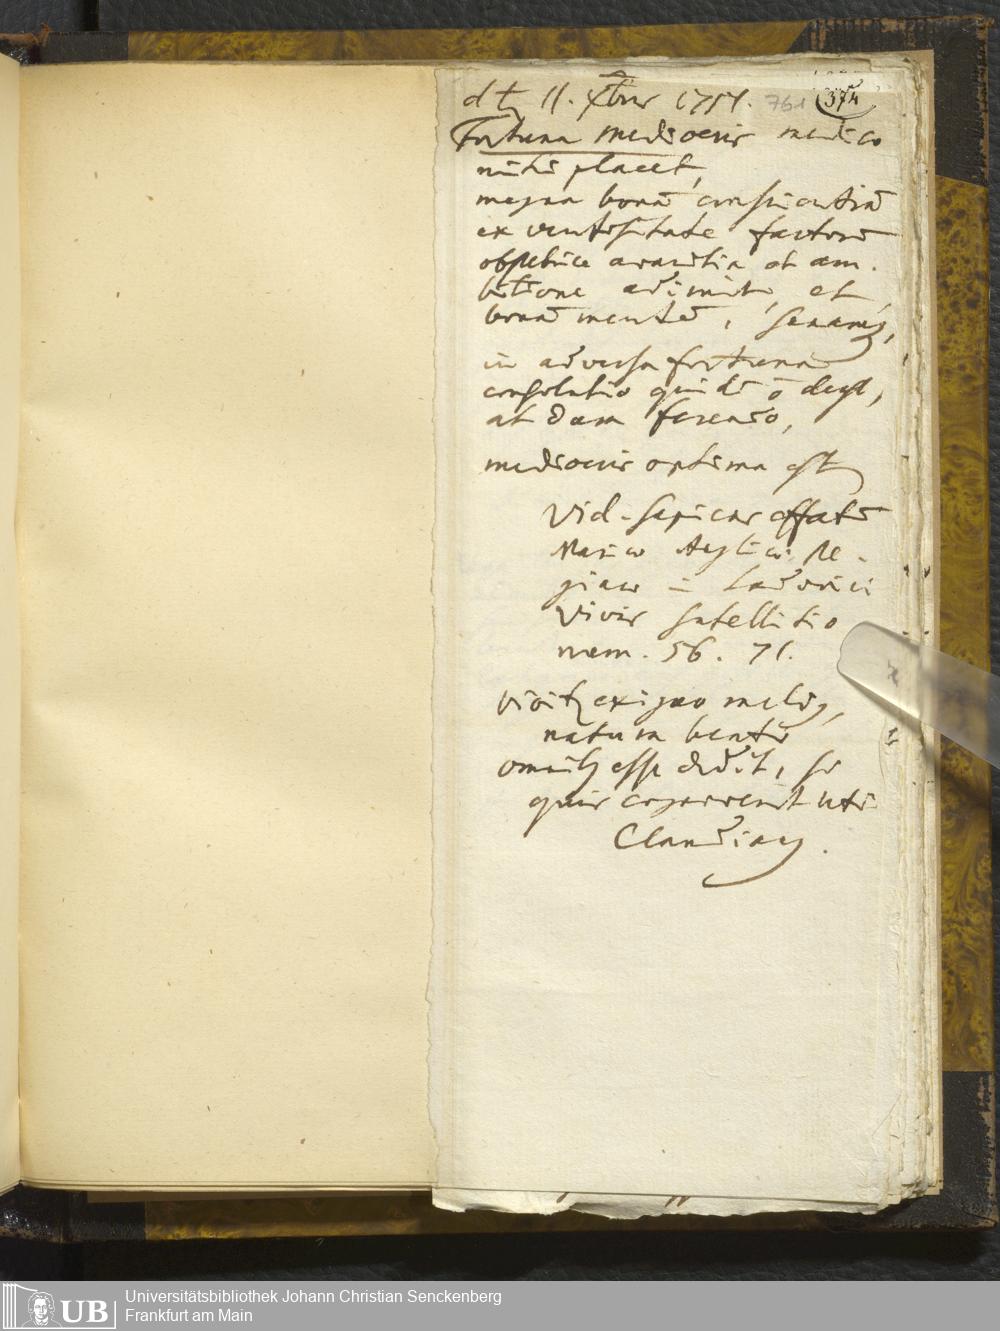 d ♄ 11. Xbris 1751. 761 374
Fortuna mediocris medico
mihi placet,
magna bonā conscientiā
ex ventositate
obstetrice avaritia et am-
bitione adimit, et
bonā mentē, sanamq,
in adversa fortuna
consolatio quidē ō deest,
at dum ferendo,
mediocris optima est
Vid. sapiens effatū
Marico
giano in Ludovici
Vivis satellitio
num. 56. 71.
vivitur exiguo melius,
natura beatis
omnibus esse dedit, si
quis cognoverit uti
Claudianus.
Universitätsbibliothek Johann Christian Senckenberg
UB Frankfurt am Main